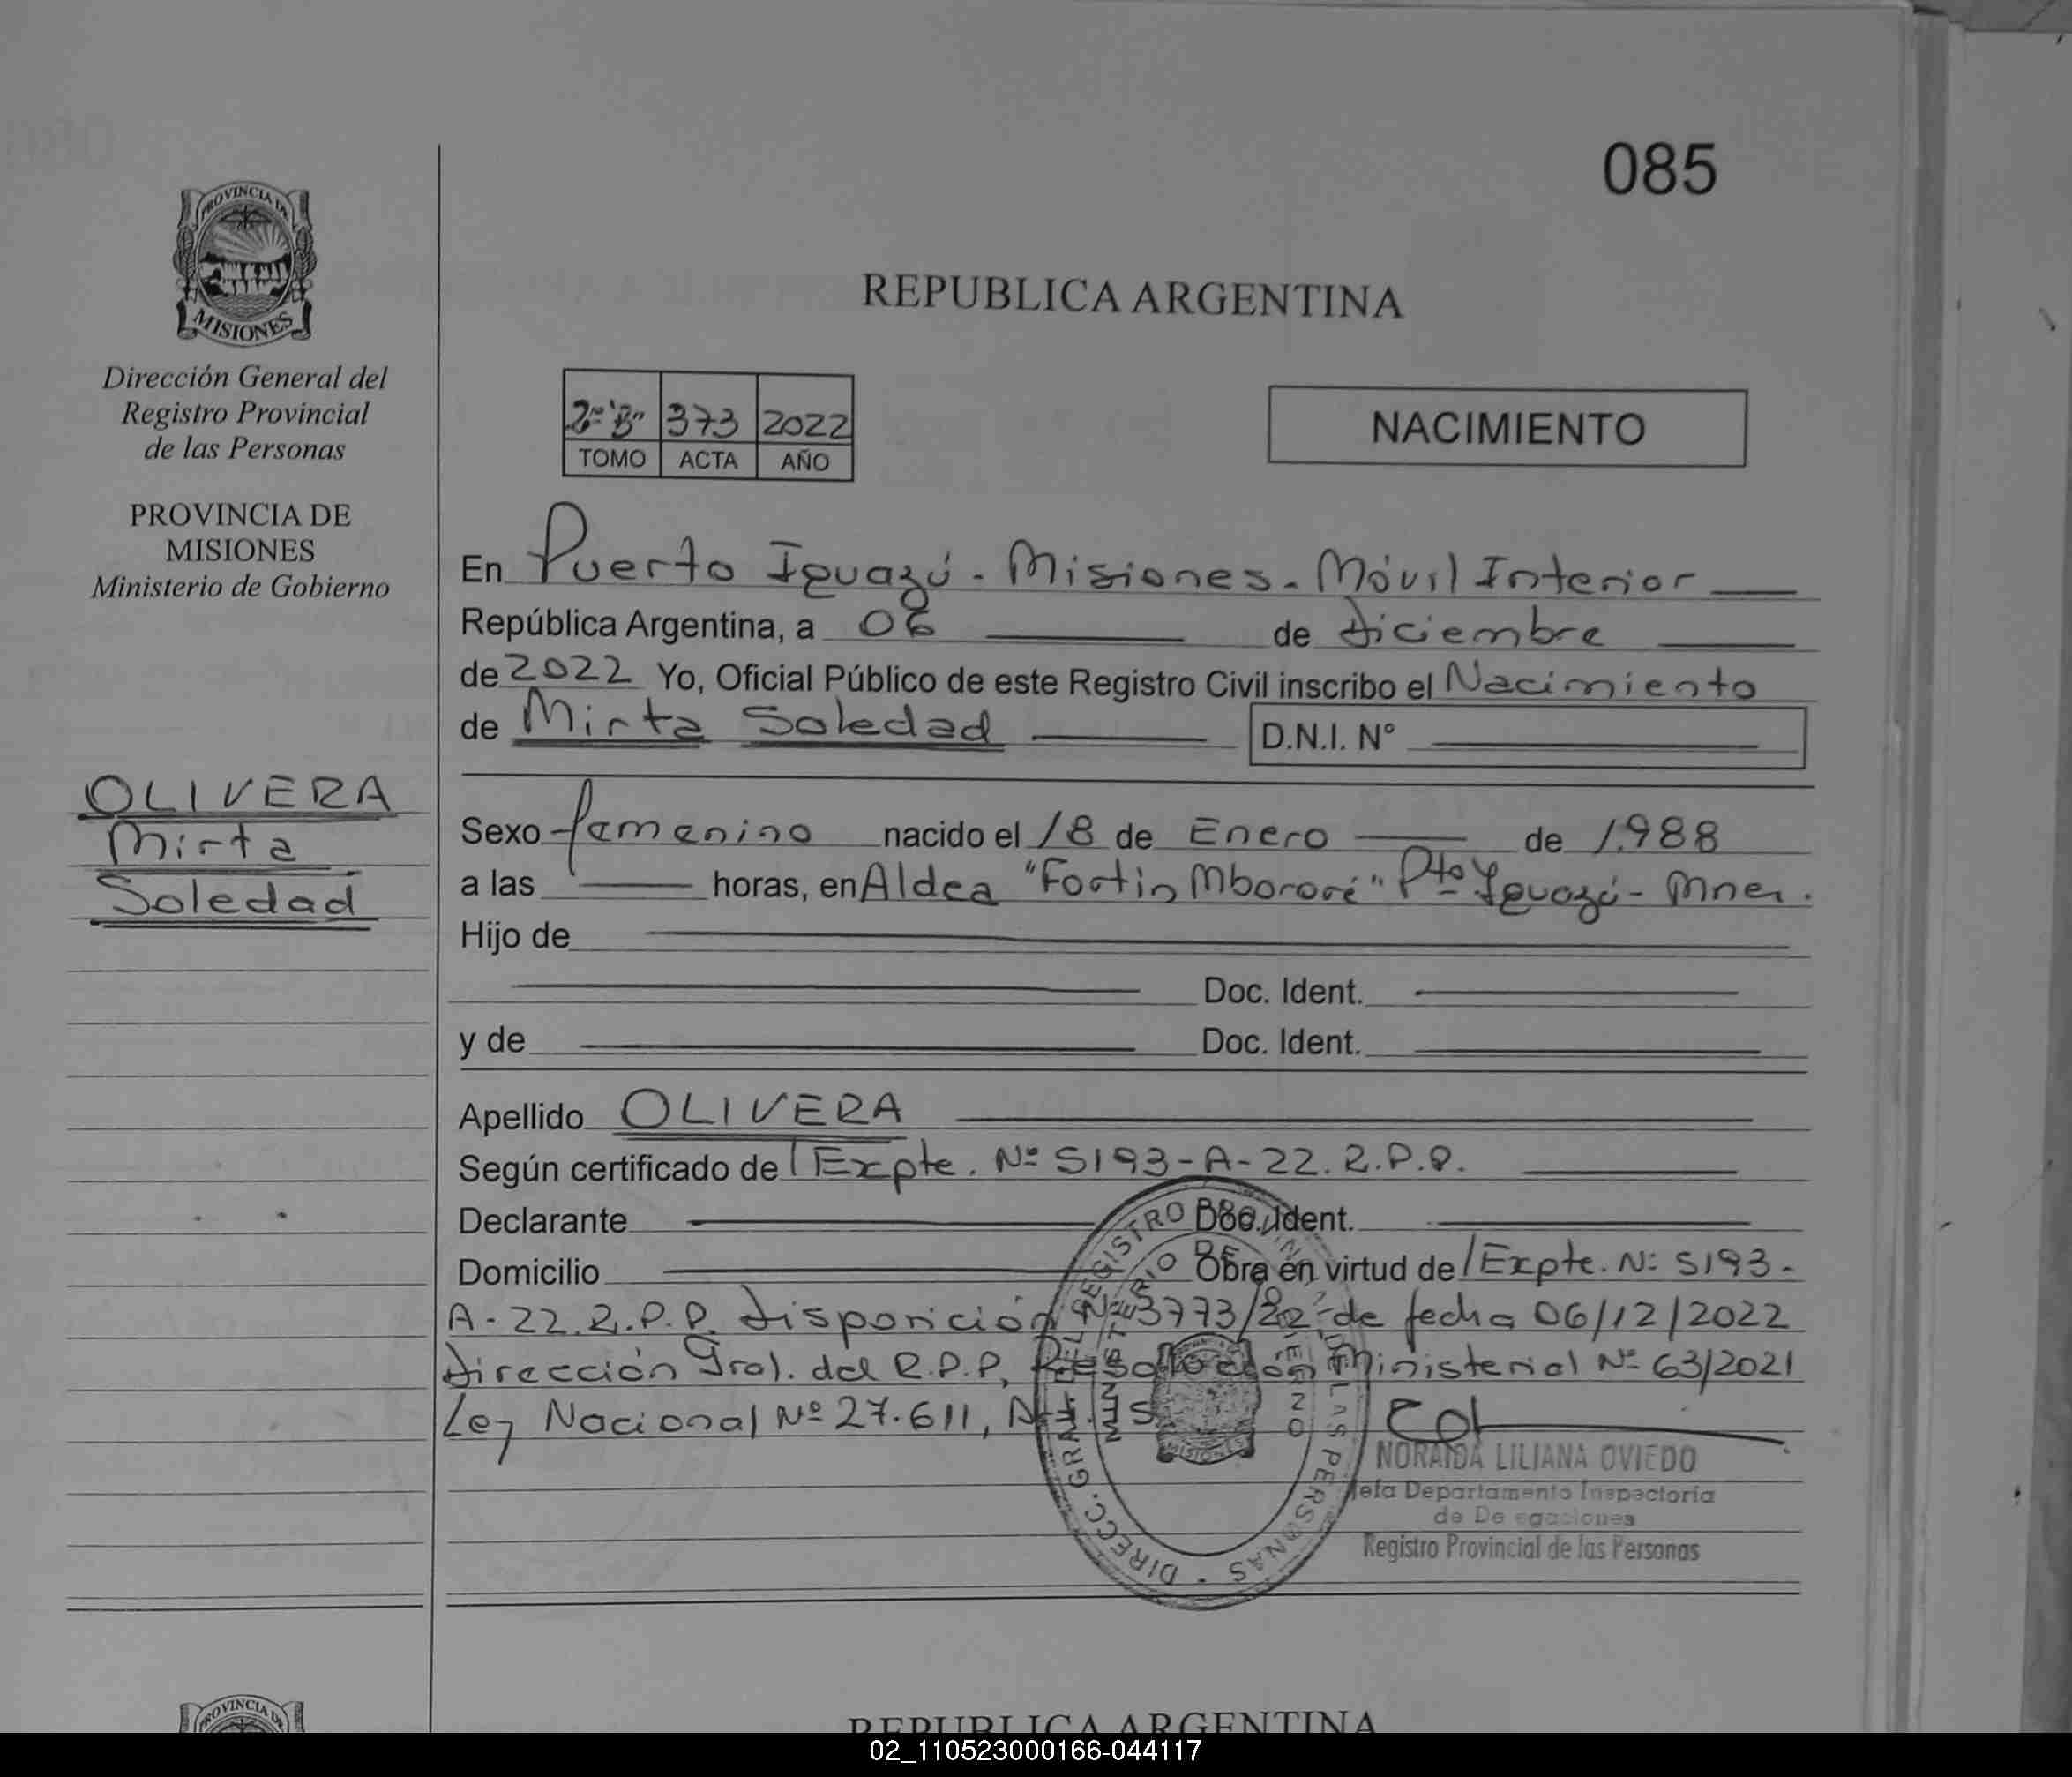 085
PROVINCIA DE
MISIONES
Dirección General del
Registro Provincial
de las Personas
PROVINCIA DE
MISIONES
Ministerio de Gobierno
OLIVERA
Mirta
Soledad
REPUBLICA ARGENTINA
2º "B" 373 2022
TOMO ACTA AÑO
NACIMIENTO
En Puerto Iguazú - Misiones - Móvil Interior
República Argentina, a 06 de diciembre
de 2022 Yo, Oficial Público de este Registro Civil inscribo el Nacimiento
de Mirta Soledad D.N.I. Nº
Sexo femenino nacido el 18 de Enero de 1.988
a las horas, en Aldea "Fortin Mbororé" Pto Iguazú - Mnes.
Hijo de
Doc. Ident.
y de Doc. Ident.
Apellido OLIVERA
Según certificado de Expte. Nº 5193-A-22. R.P.P.
Declarante Doc. Ident.
Domicilio Obra en virtud de Expte. Nº 5193-
A-22. R.P.P. disposición Nº 3773/22 de fecha 06/12/2022
Dirección Gral. del R.P.P, Resolución Ministerial Nº 63/2021
Ley Nacional Nº 27.611, Art. 5
DIRECC. GRAL. DEL REGISTRO PROVINCIAL DE LAS PERSONAS
MINISTERIO DE GOBIERNO
MISIONES
NORAIDA LILIANA OVIEDO
Jefa Departamento Inspectoría
de Delegaciones
Registro Provincial de las Personas
PROVINCIA DE
REPUBLICA ARGENTINA
02_110523000166-044117